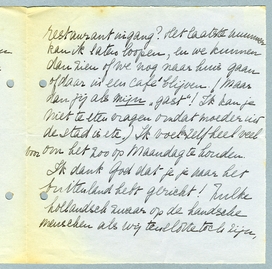 restaurant ingang? Het laatste nummer
kan ik laten loopen, en we kunnen
dan zien of we nog naar huis gaan
of daar in een café blijven. (Maar
dan jij als mijn "gast"! Ik kan je
niet te eten vragen omdat moeder uit
de stad is etc.) Ik voel zelf heel veel
voor om het zoo op Maandag te houden.
Ik dank God dat je je naar het
buitenland hebt gericht! Zulke
hollandsch op de
menschen als wij tenslotte toch zijn,